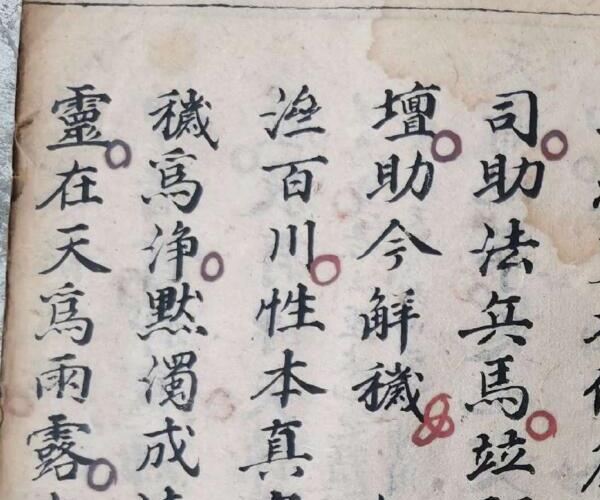 司助法兵馬竝
壇助今觧穢
百川性本真
穢爲净黙濁成
靈在天爲雨露